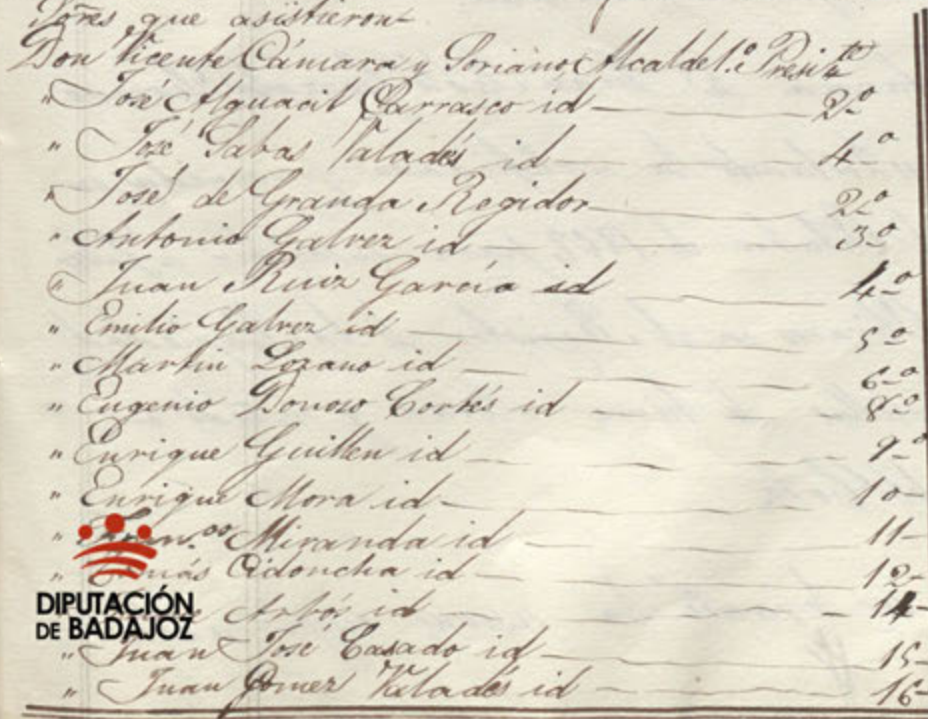 Sores que asistieron
Don Vicente Cámara y Soriano, Alcalde 1.º Presidte
" José Alguacil Carrasco id 2º
" José Sabas Valadés id 4º
" José de Granda Regidor 2º
" Antonio Galvez id 3º
" Juan Ruiz García id 4º
" Emilio Galvez id 5º
" Martin Lozano id 6º
" Eugenio Donoso Cortés id 8º
" Enrique Guillen id 9º
" Enrique Mora id 10
" Miranda id 11
" Cidoncha id 12
" id 14
" Juan José Casado id 15
" Juan Gomez Valadés id 16
DIPUTACIÓN
DE BADAJOZ